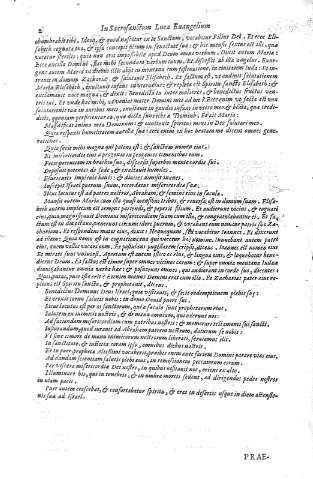 2 In Sacrosanctum Lucæ Euangelium
obumbrabit tibi, Ideoq; & quod nascetur ex te Sanctum, vocabitur Filius Dei. Et ecce Eli-
sabeth cognata tua, & ipsa concepit filium in senectute sua: & hic mensis sextus est illi, quæ
vocatur sterilis: quia non erit impossibile apud Deum omne verbum. Dixit autem Maria:
Ecce ancilla Domini, fiat mihi secundum verbum tuum. Et discessit ab illa angelus. Exur-
gens autem Maria in diebus illis abijt in montana cum festinatione, in ciuitatem Iuda: Et in-
trauit in domum Zachariæ, & salutauit Elisabeth. Et factum est, vt audiuit salutationem
Mariæ Elisabeth, exultauit infans in vtero eius: & repleta est Spiritu sancto Elisabeth: &
exclamauit voce magna, & dixit: Benedicta tu inter mulieres, & benedictus fructus ven-
tris tui. Et vnde hoc mihi, vt veniat mater Domini mei ad me? Ecce enim vt facta est vox
salutationis tuæ in auribus meis, exultauit in gaudio infans in vtero meo, & beata, quæ credi-
disti, quoniam perficientur ea, quæ dicta sunt tibi a Domino. Et ait Maria:
Magnificat anima mea Dominum: & exultauit spiritus meus in Deo salutari meo.
Quia respexit humilitatem ancillæ suæ: ecce enim ex hoc beatam me dicent omnes gene-
rationes.
Quia fecit mihi magna qui potens est: & sanctum nomen eius.
Et misericordia eius a progenie in progenies timentibus eum.
Fecit potentiam in brachio suo, dispersit superbos mente cordis sui.
Deposuit potentes de sede, & exaltauit humiles.
Esurientes impleuit bonis: & diuites dimisit inanes.
Suscepit Israel puerum suum, recordatus misericordiæ suæ,
Sicut locutus est ad patres nostros, Abraham, & semini eius in sæcula.
Mansit autem Maria cum illa quasi mensibus tribus, & reuersa est in domum suam. Elisa-
beth autem impletum est tempus pariendi, & peperit filium. Et audierunt vicini, & cognati
eius, quia magnificauit Dominus misericordiam suam cum illa, & congratulabantur ei. Et fa-
ctum est in die octauo, venerunt circumcidere puerum, & vocabant eum nomine patris sui Za-
chariam. Et respondens mater eius, dixit: Nequaquam, sed vocabitur Ioannes. Et dixerunt
ad illam: Quia nemo est in cognatione tua qui vocetur hoc nomine. Innuebant autem patri
eius, quem vellet vocari eum. Et postulans pugillarem scripsit, dicens: Ioannes est nomen eius.
Et mirati sunt vniuersi. Apertum est autem illico os eius, & lingua eius, & loquebatur bene-
dicens Deum. Et factus est timor super omnes vicinos eorum: & super omnia montana Iudææ
diuulgabantur omnia verba hæc: & posuerunt omnes, qui audierant in corde suo, dicentes:
Quis, putas, puer iste erit? Etenim manus Domini erat cum illo. Et Zacharias pater eius re-
pletus est Spiritu sancto, & prophetauit, dicens.
Benedictus Dominus Deus Israel, quia visitauit, & fecit redemptionem plebis suæ:
Et erexit cornu salutis nobis: in domo Dauid pueri sui.
Sicut locutus est per os sanctorum, qui a sæculo sunt prophetarum eius.
Salutem ex inimicis nostris, & de manu omnium, qui oderunt nos:
Ad faciendam misericordiam cum patribus nostris: & memorari testamenti sui sancti.
Iusiurandum, quod iurauit ad Abraham patrem nostrum, daturum se nobis:
Vt sine timore de manu inimicorum nostrorum liberati, seruiamus illi.
In sanctitate, & iustitia coram ipso, omnibus diebus nostris.
Et tu puer propheta Altissimi vocaberis, præibis enim ante faciem Domini parare vias eius,
Ad dandam scientiam salutis plebi eius, in remissionem peccatorum eorum.
Per viscera misericordiæ Dei nostri, in quibus visitauit nos, oriens ex alto.
Illuminare his, qui in tenebris, & in vmbra mortis sedent, ad dirigendos pedes nostros
in viam pacis.
Puer autem crescebat, & confortabatur spiritu, & erat in desertis vsque in diem ostensio-
nis suæ ad Israel.
PRAE-